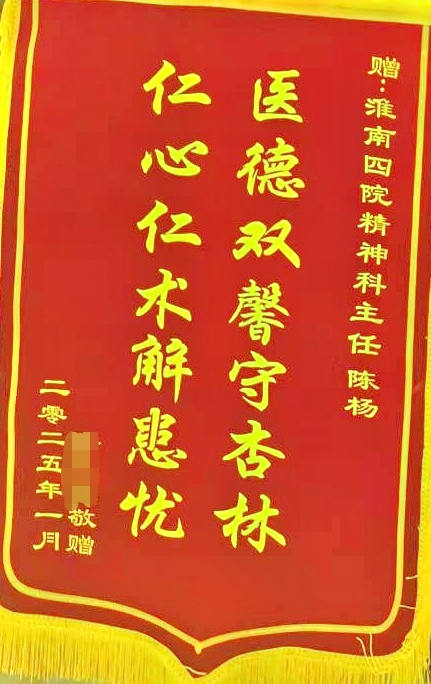 赠：淮南四院精神科主任 陈杨
医德双馨守杏林
仁心仁术解患忧
敬赠
二零二五年一月